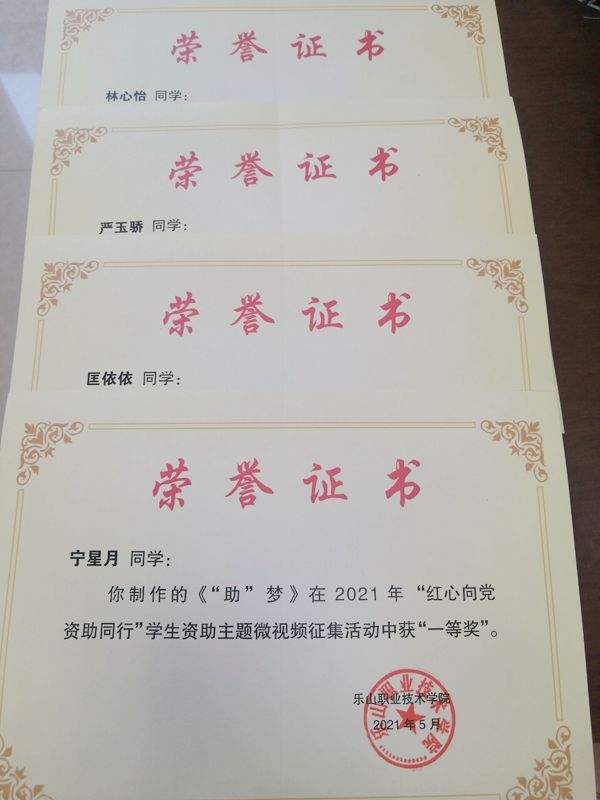 荣誉证书
林心怡 同学：
荣誉证书
严玉骄 同学：
荣誉证书
匡依依 同学：
荣誉证书
宁星月 同学：
你制作的《“助”梦》在 2021 年 “红心向党
资助同行”学生资助主题微视频征集活动中获“一等奖”。
乐山职业技术学院
2021 年 5 月
乐山职业技术学院